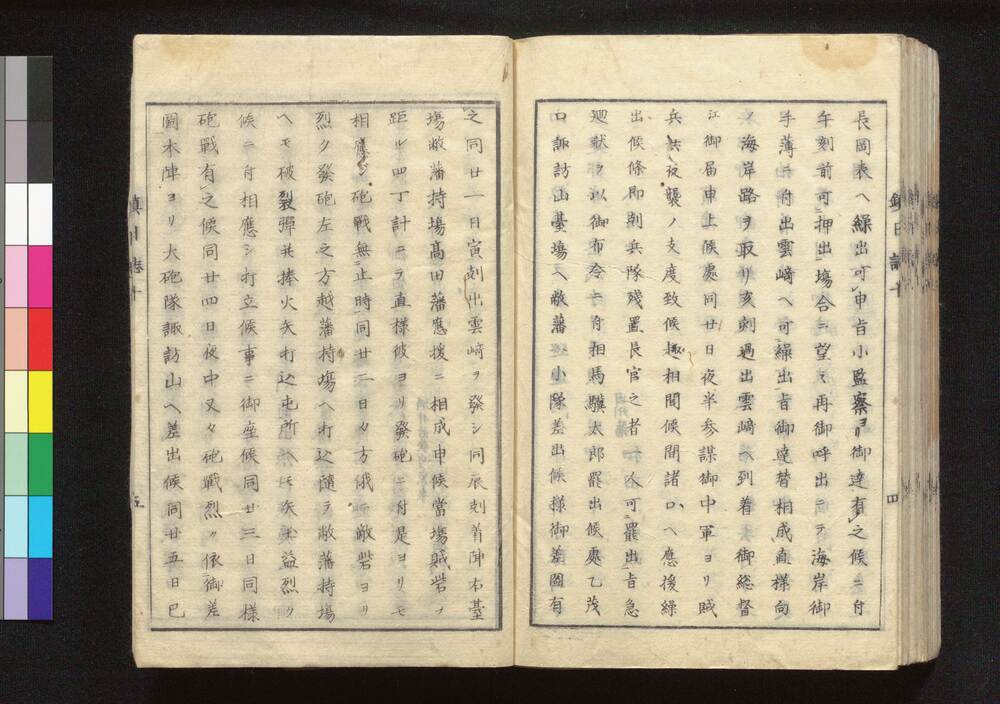 長岡表ヘ繰出可申旨小監察ヨリ御達有之候ニ付
午刻前可押出塲合ニ望ミ再御呼出ニテ海岸御
手薄ニ付出雲﨑ヘ可繰出旨御達替相成直樣向
海岸路ヲ取リ亥刻過出雲﨑ヘ到着御総督
江御届申上候處同廿日夜半參謀御中軍ヨリ賊
兵夜襲ノ支度致候趣相聞候間諸口ヘ應援繰
出候條即刻兵隊殘置長官之者可罷出旨急
廻狀ヲ以御布令ニ付相馬驥太郎罷出候處乙茂
口諏訪山臺塲ヘ敝藩小隊差出候樣御差圖有
之同廿一日寅刻出雲﨑ヲ發シ同辰刻着陣右臺
塲敝藩持塲髙田藩應援ニ相成申候當塲賊砦ヲ
距ル四丁計ニテ直樣彼ヨリ發砲ニ付是ヨリモ
相應シ砲戰無止時同廿二日夕方俄ニ敵砦ヨリ
烈ク發砲左之方越藩持塲ヘ打込隨テ敝藩持塲
ヘモ破裂彈幷捧火矢打込屯所ヘモ矢玉益烈ク
候ニ付相應シ打立候事ニ御座候同廿三日同樣
砲戰有之候同廿四日夜中又々砲戰烈ク依御差
圖本陣ヨリ大砲隊諏訪山ヘ差出候同廿五日巳